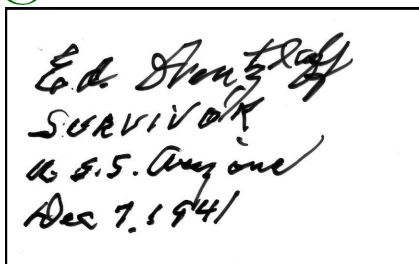 Ed. Wentzlaff
SURVIVOR
U.S.S. Arizona
Dec 7, 1941